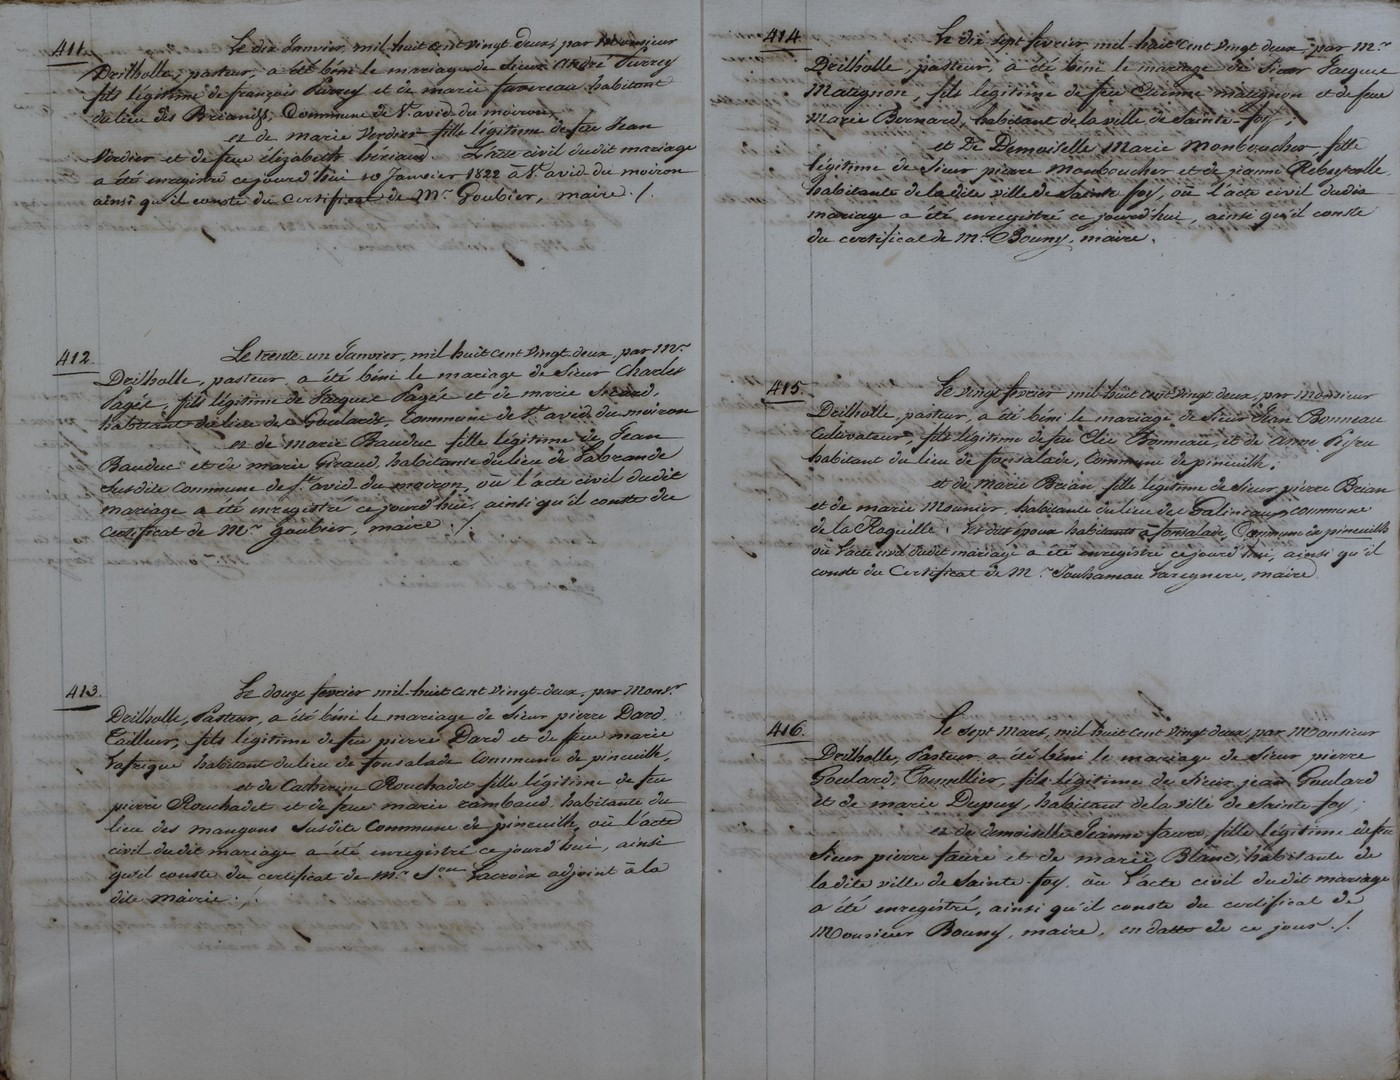 411.
Le dix Janvier, mil-huit cent vingt deux, par Monsieur
Drilholle, pasteur, a été béni le mariage de Sieur André Surrey
fils légitime de françois Surrey et de marie favereau habitant
du lieu des Briands, Commune de St avid du moiron,
et de marie Verdier fille légitime de feu Jean
Verdier et de feu élizabeth bériaud L'acte civil dudit mariage
a été enregistré ce jourd'hui 10 Janvier 1822 à St avid du moiron
ainsi qu'il conste du Certificat de Mr. Goubier, maire ./.
412.
Le trente-un Janvier, mil huit cent vingt-deux, par Mr.
Drilholle, pasteur a été béni le mariage de Sieur Charles
Pagés, fils légitime de Jacques Pagés et de marie Sicard,
habitant du lieu des Goulards, Commune de St avid du moiron
et de marie Bauduc fille légitime de Jean
Bauduc et de marie Giraud, habitante du lieu de Labrande
susdite commune de St avid du moiron, où l'acte civil dudit
mariage a été enregistré ce jourd'hui, ainsi qu'il conste du
certificat de Mr. Goubier, maire ./.
413.
Le douze fevrier mil-huit cent vingt-deux, par Monsr.
Drilholle, Pasteur, a été béni le mariage de Sieur pierre Dard,
Tailleur, fils légitime de feu pierre Dard et de feue marie
Lafrique habitant du lieu de fonsalade Commune de pineuilh,
et de Catherine Rouchadet fille légitime de feu
pierre Rouchadet et de feue marie rambaud habitante du
lieu des mangons susdite Commune de pineuilh, où l'acte
civil dudit mariage a été enregistré ce jourd'hui, ainsi
qu'il conste du certificat de Mr. Lacroix adjoint à la
dite mairie ./.
414.
Le dix sept fevrier, mil-huit cent vingt deux, par Mr.
Drilholle, pasteur, a été béni le mariage de Sieur Jacques
Matignon, fils légitime de feu Etienne matignon et de feue
Marie Bernard, habitant de la ville de Sainte-foy ;
et De Demoiselle Marie Monboucher, fille
légitime de Sieur pierre Monboucher et de jeanne Rebeyrolle,
habitante de la dite ville de Sainte foy, où l'acte civil dudit
mariage a été enregistré ce jourd'hui, ainsi qu'il conste
du certificat de Mr. Bouny, maire.
415.
Le vingt fevrier mil-huit cent vingt deux, par Monsieur
Drilholle, pasteur, a été béni le mariage de Sieur Jean Bonneau
Cultivateur, fils légitime de feu Elie Bonneau et de anne Peyru
habitant du lieu de fonsalade, Commune de pineuilh ;
et de Marie Brian fille légitime de Sieur pierre Brian
et de marie Meunier, habitante du lieu des Galineaux commune
de la Roquille. Lesdits époux habitants à fonsalade, Commune de pineuilh
où l'acte civil dudit mariage a été enregistré ce jourd'hui, ainsi qu'il
conste du Certificat de Mr. Jouhanneau Laregnere, maire
416.
Le Sept Mars, mil huit cent vingt deux, par Monsieur
Drilholle, Pasteur a été béni le mariage de Sieur pierre
Goulard, Tonnellier, fils légitime de Sieur jean Goulard
et de marie Dupuy, habitant de la ville de Sainte-foy ;
et de demoiselle Jeanne faure, fille légitime de feu
Sieur pierre faure et de marie Blanc, habitante de
la dite ville de Sainte-foy, où l'acte civil dudit mariage
a été enregistré, ainsi qu'il conste du certificat de
Monsieur Bouny, maire, en datte de ce jour ./.